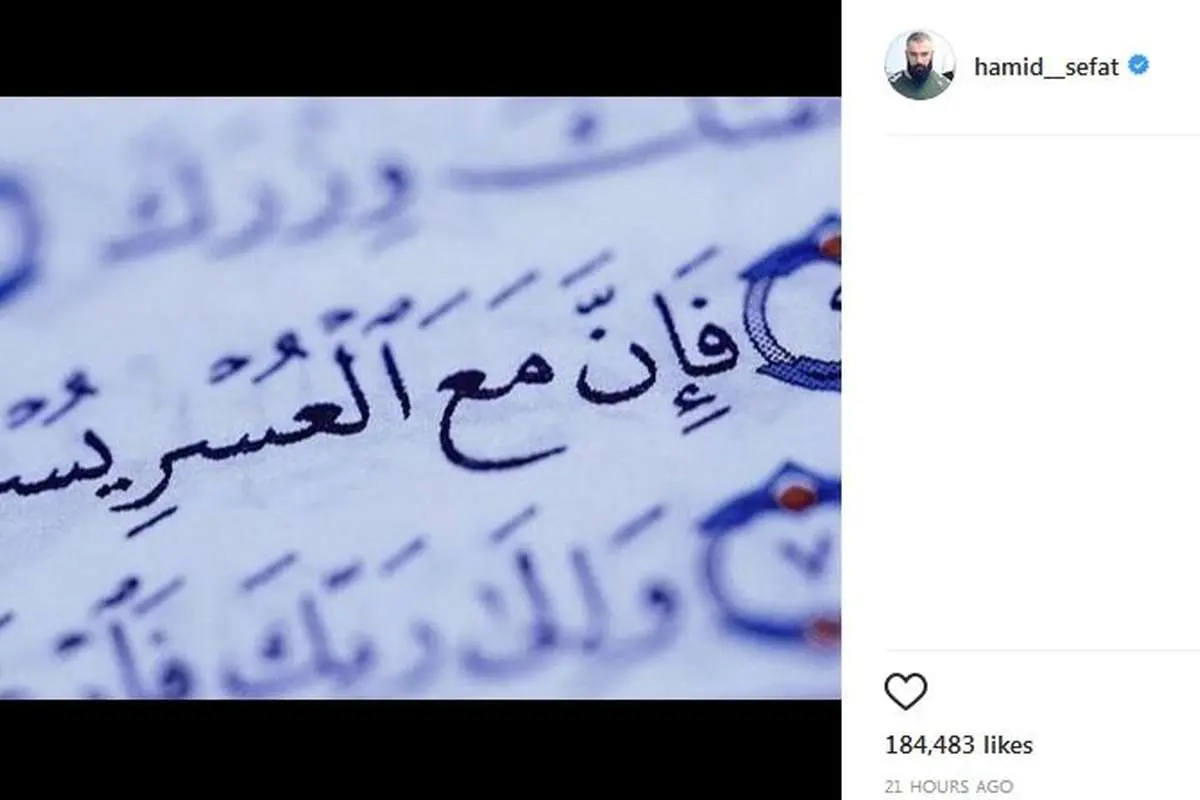 hamid__sefat
وِزْرَكَ
فَإِنَّ مَعَ ٱلْعُسْرِ يُسْ
رَبِّكَ
184,483 likes
21 HOURS AGO